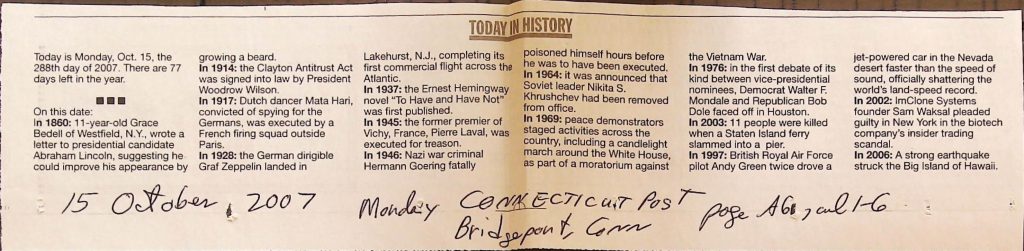 TODAY IN HISTORY
Today is Monday, Oct. 15, the
288th day of 2007. There are 77
days left in the year.
On this date:
In 1860: 11-year-old Grace
Bedell of Westfield, N.Y., wrote a
letter to presidential candidate
Abraham Lincoln, suggesting he
could improve his appearance by
growing a beard.
In 1914: the Clayton Antitrust Act
was signed into law by President
Woodrow Wilson.
In 1917: Dutch dancer Mata Hari,
convicted of spying for the
Germans, was executed by a
French firing squad outside
Paris.
In 1928: the German dirigible
Graf Zeppelin landed in
Lakehurst, N.J., completing its
first commercial flight across the
Atlantic.
In 1937: the Ernest Hemingway
novel "To Have and Have Not"
was first published.
In 1945: the former premier of
Vichy, France, Pierre Laval, was
executed for treason.
In 1946: Nazi war criminal
Hermann Goering fatally
poisoned himself hours before
he was to have been executed.
In 1964: it was announced that
Soviet leader Nikita S.
Khrushchev had been removed
from office.
In 1969: peace demonstrators
staged activities across the
country, including a candlelight
march around the White House,
as part of a moratorium against
the Vietnam War.
In 1976: in the first debate of its
kind between vice-presidential
nominees, Democrat Walter F.
Mondale and Republican Bob
Dole faced off in Houston.
In 2003: 11 people were killed
when a Staten Island ferry
slammed into a pier.
In 1997: British Royal Air Force
pilot Andy Green twice drove a
jet-powered car in the Nevada
desert faster than the speed of
sound, officially shattering the
world's land-speed record.
In 2002: ImClone Systems
founder Sam Waksal pleaded
guilty in New York in the biotech
company's insider trading
scandal.
In 2006: A strong earthquake
struck the Big Island of Hawaii.
15 October, 2007 Monday CONNECTICUT POST page A6, col 1-6
Bridgeport, Conn